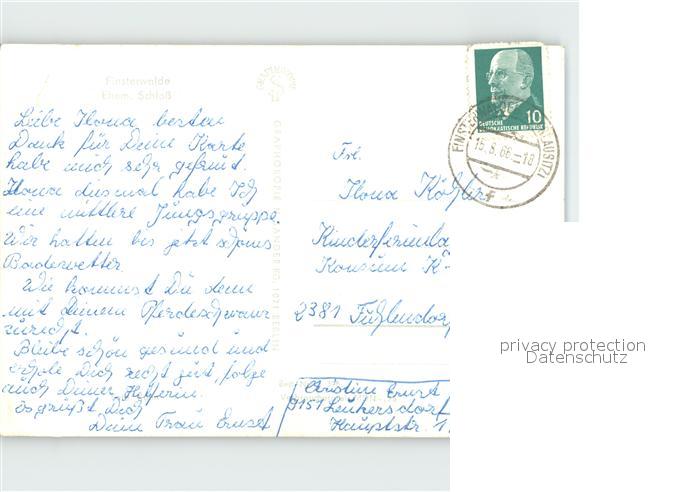 Finsterwalde
Ehem. Schloß
Liebe Ilona besten
Dank für Deine Karte
habe mich sehr gefreut.
Ilona diesmal habe Ich
eine mittlere Jungsgruppe.
Wir hatten bis jetzt schönes
Badewetter.
Wie kommst Du denn
mit Deinem Pferdeschwanz
zurecht.
Bleibe schön gesund und
erhole Dich recht gut, folge
auch Deiner Helferin.
Es grüßt Dich
Deine Frau Ernst
DEUTSCHE
DEMOKRATISCHE REPUBLIK
10
15.8.66-18
Frl.
Ilona Köhler
Kinderferienla
Konsum K-
2381 Fuhlendorf
Christine Ernst
9151 Leukersdorf
Hauptstr. 1
privacy protection
Datenschutz